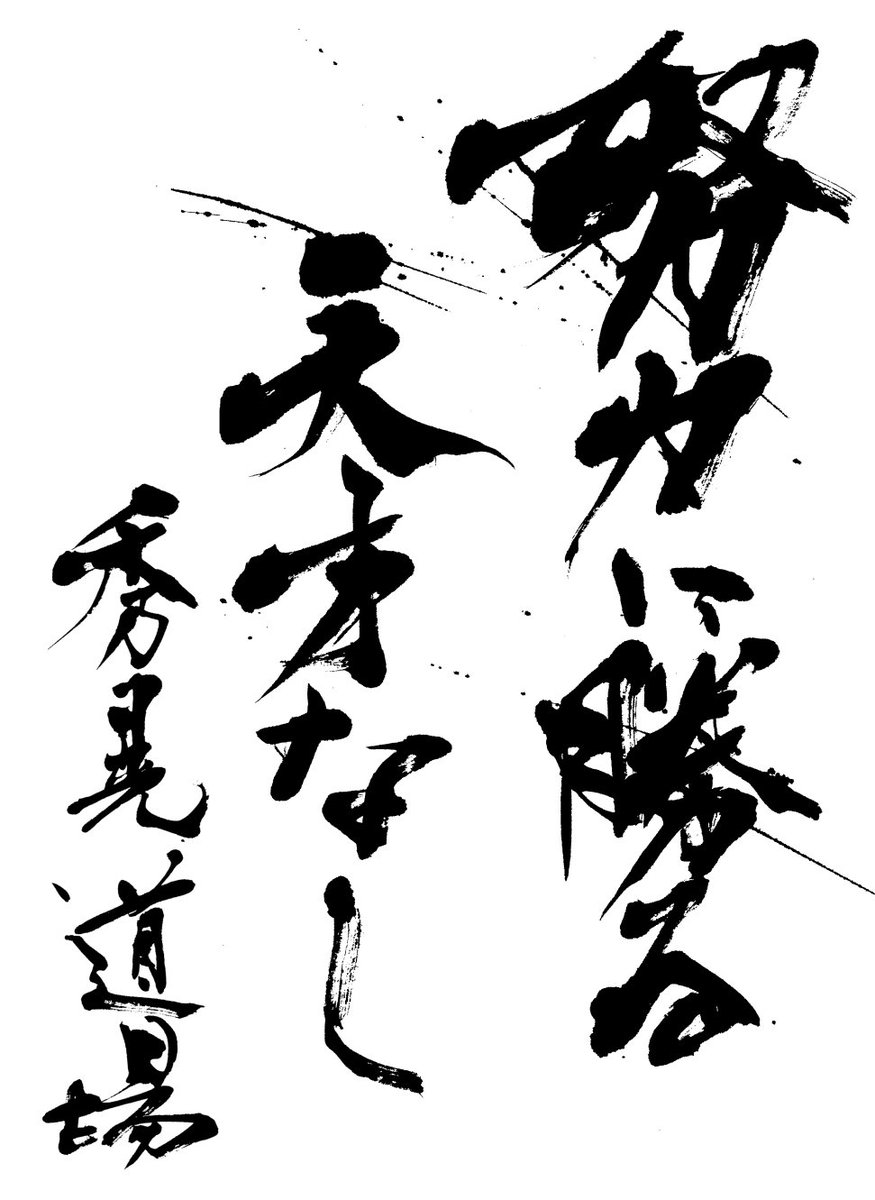 努力に勝る
天才なし
秀晃道場